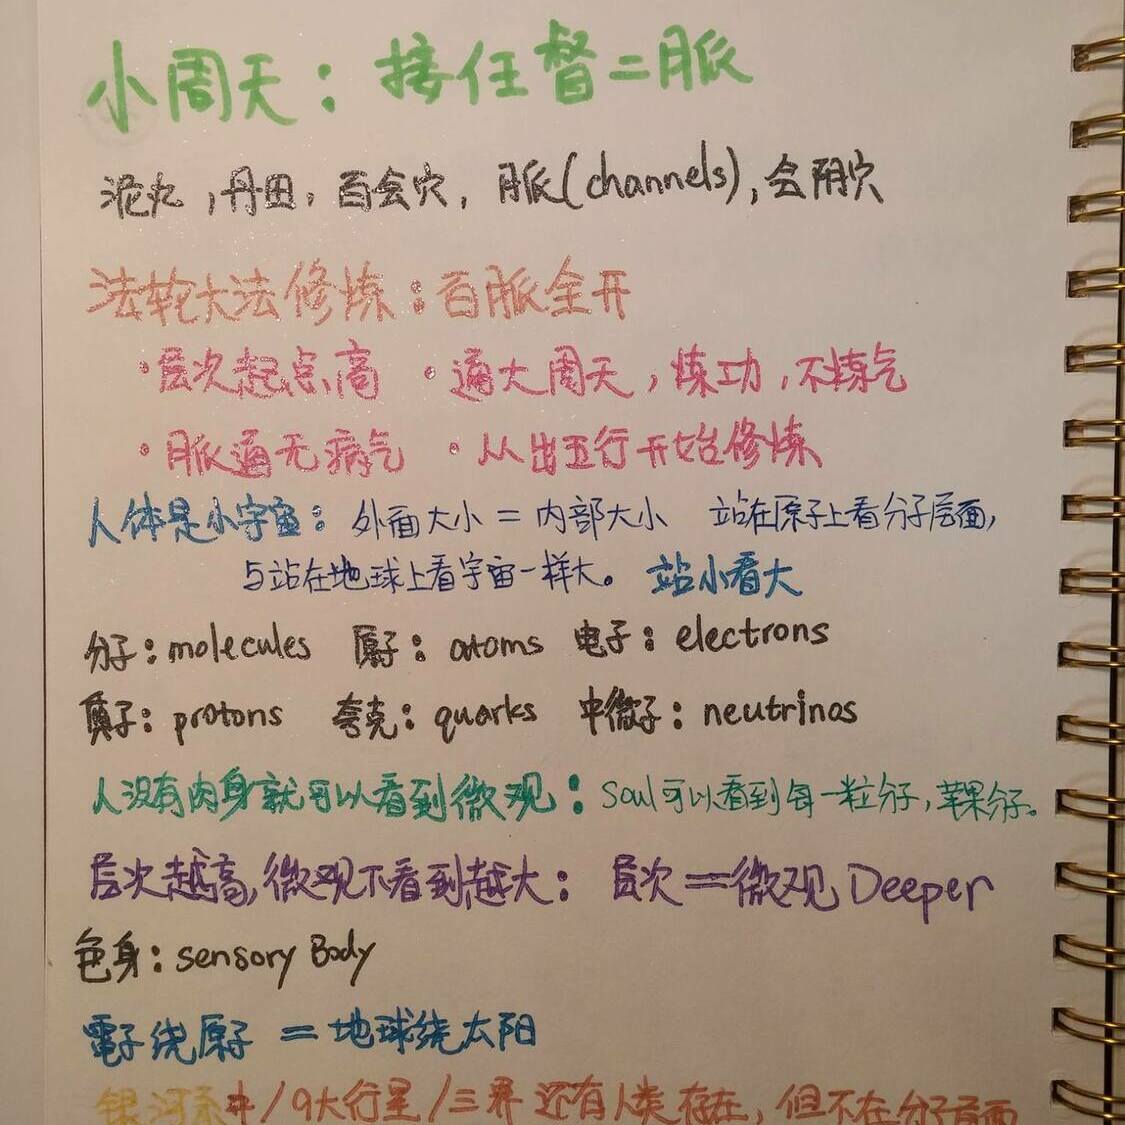 小周天：接任督二脈
泥丸，丹田，百会穴，脈(channels)，会阴穴
法轮大法修炼：百脈全开
·层次起点高 ·通大周天，炼功，不炼气
·脈通无病气 ·从出五行开始修炼
人体是小宇宙：外面大小＝内部大小 站在原子上看分子层面，
与站在地球上看宇宙一样大。 站小看大
分子：molecules 原子：atoms 电子：electrons
質子：protons 夸克：quarks 中微子：neutrinos
人没有肉身就可以看到微观：Soul可以看到每一粒分子，苹果分子。
层次越高，微观下看到越大：层次＝微观 Deeper
色身：sensory Body
電子绕原子 ＝地球绕太阳
银河系中/9大行星/三界 还有人类存在，但不在分子层面